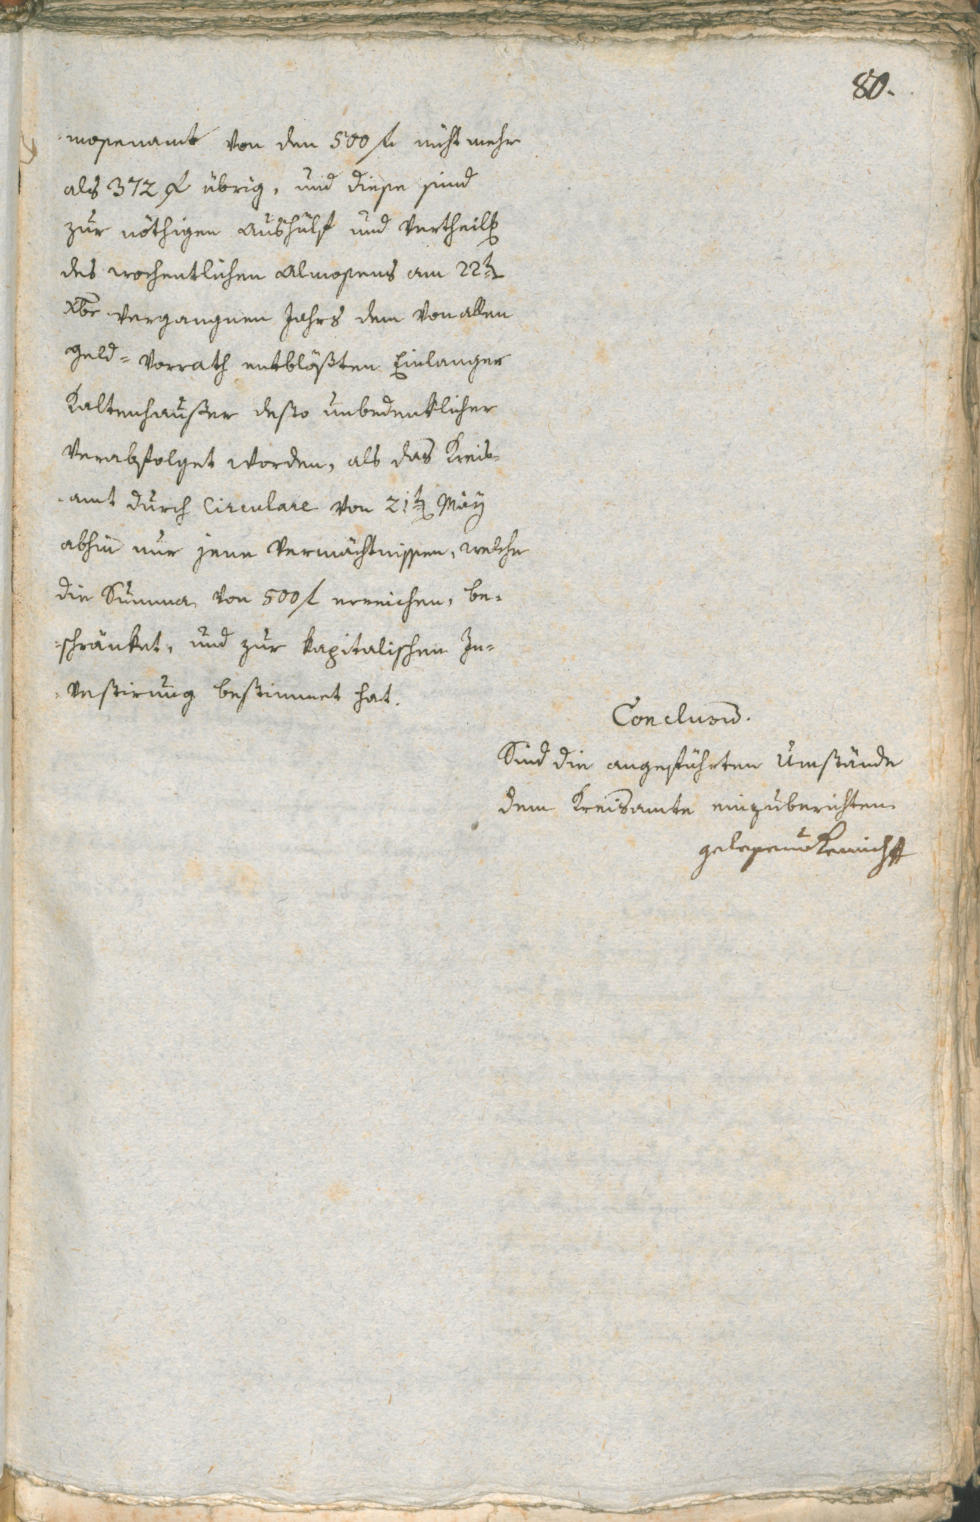 80.
mosenamt von den 500 f nicht mehr
als 372 f übrig, und diese sind
zur nöthigen Aushülf und Vertheilg
des wochentlichen Almosens am 22t
Xbr vergangnen Jahrs dem von allen
Geld-Vorrath entblößten
Kaltenhaußer desto unbedenklicher
verabfolget worden, als das Kreis-
amt durch Circulare von 21t May
abhin nur jene Vermächtnissen, welche
die Summa von 500 f erreichen, be-
-schränket, und zur kapitalischen In-
-vestirung bestimmet hat.
Conclusum.
Sind die angeführten Umstände
dem Kreisamte einzuberichten.